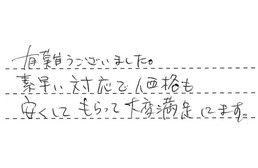 有難うございました。
素早い対応で、価格も
安くしてもらって大変満足してます。